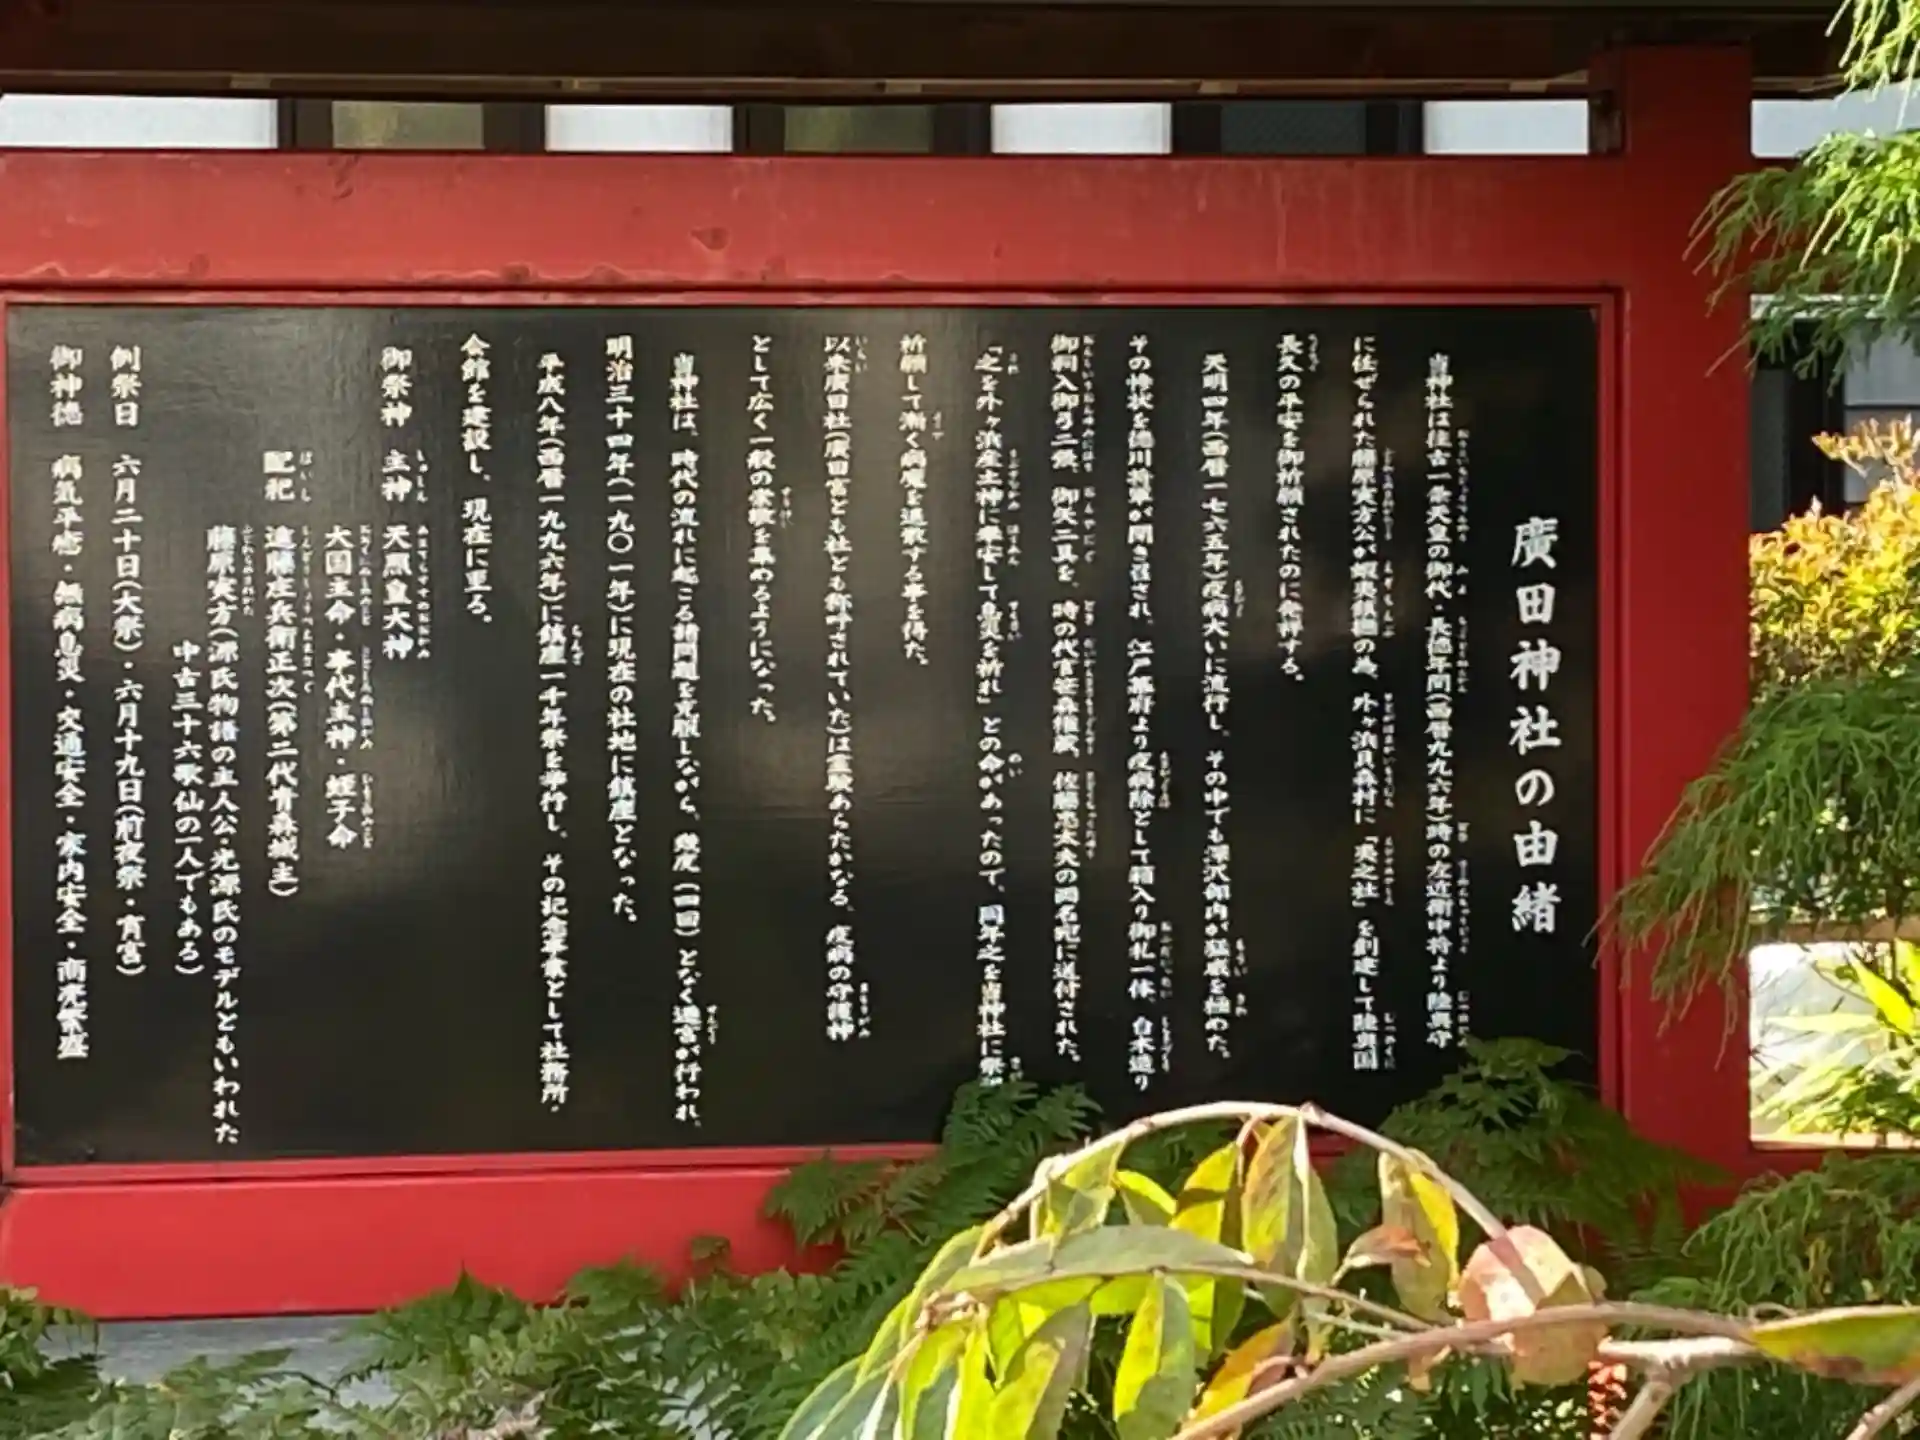 廣田神社の由緒
当神社は往古一条天皇の御代・長徳年間(西暦九九六年)時の左近衛中将より陸奥守
に任ぜられた藤原実方公が蝦夷鎮撫の為、外ヶ浜貝森村に「夷之社」を創建して陸奥国
長久の平安を御祈願されたのに発祥する。
天明四年(西暦一七六五年)疫病大いに流行し、その中でも深沢部内が猛威を極めた。
その惨状を徳川将軍が聞き召され、江戸幕府より疫病除として箱入り御札一体、白木造り
御祠入御弓二張、御矢二具を、時の代官笹森権蔵、佐藤悪太夫の両名宛に送付された。
「之を外ヶ浜産土神に奉安して息災を祈れ」との命があったので、同年之を当神社に祭
祈願して漸く病魔を退散する事を得た。
以来廣田社(廣田宮とも社とも称号されていた)は霊験あらたかなる、疫病の守護神
として広く一般の崇敬を集めるようになった。
当神社は、時代の流れに起こる諸問題を克服しながら、幾度(四回)となく遷宮が行われ、
明治三十四年(一九〇一年)に現在の社地に鎮座となった。
平成八年(西暦一九九六年)に鎮座一千年祭を挙行し、その記念事業として社務所・
会館を建設し、現在に至る。
御祭神 主神 天照皇大神
大国主命・事代主神・蛭子命
配祀 進藤庄兵衛正次(第二代青森城主)
藤原実方(源氏物語の主人公・光源氏のモデルともいわれた
中古三十六歌仙の一人でもあろ)
例祭日 六月二十日(大祭)・六月十九日(前夜祭・宵宮)
御神徳 病気平癒・無病息災・交通安全・家内安全・商売繁盛